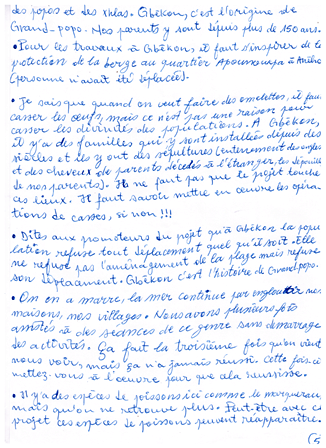 des popos et des xhlas. Gbèkon, c'est l'origine de
Grand-popo. Nos parents y sont depuis plus de 150 ans.
• Pour les travaux à Gbèkon, il faut s'inspirer de la
protection de la berge au quartier à Aného
(personne n'avait été déplacée).
• Je sais que quand on veut faire des omelettes, il faut
casser les œufs, mais ce n'est pas une raison pour
casser les divinités des populations. A Gbèkon,
il y a des familles qui y sont installées depuis des
siècles et ils y ont des sépultures (enterrement des ongles
et des cheveux de parents décédés à l'étranger, les dépouilles
de nos parents). Il ne faut pas que le projet touche
ces lieux. Il faut savoir mettre en œuvre les opéra-
tions de casses, si non !!!
• Dites aux promoteurs du projet qu'à Gbèkon la popu
lation refuse tout déplacement quel qu'il soit. Elle
ne refuse pas l'aménagement de la plage mais refuse
son déplacement. Gbèkon c'est l'histoire de Grand-popo.
• On en a marre, la mer continue par engloutir nos
maisons, nos villages. Nous avons plusieurs fois
assistés à des séances de ce genre sans démarrage
des activités. Ça fait la troisième fois qu'on vient
nous voir, mais ça n'a jamais réussi. Cette fois-ci
mettez-vous à l'œuvre pour que cela réussisse.
• Il y a des espèces de poissons ici comme le maquereau,
mais qu'on ne retrouve plus. Peut-être avec ce
projet ces espèces de poissons peuvent réapparaître.